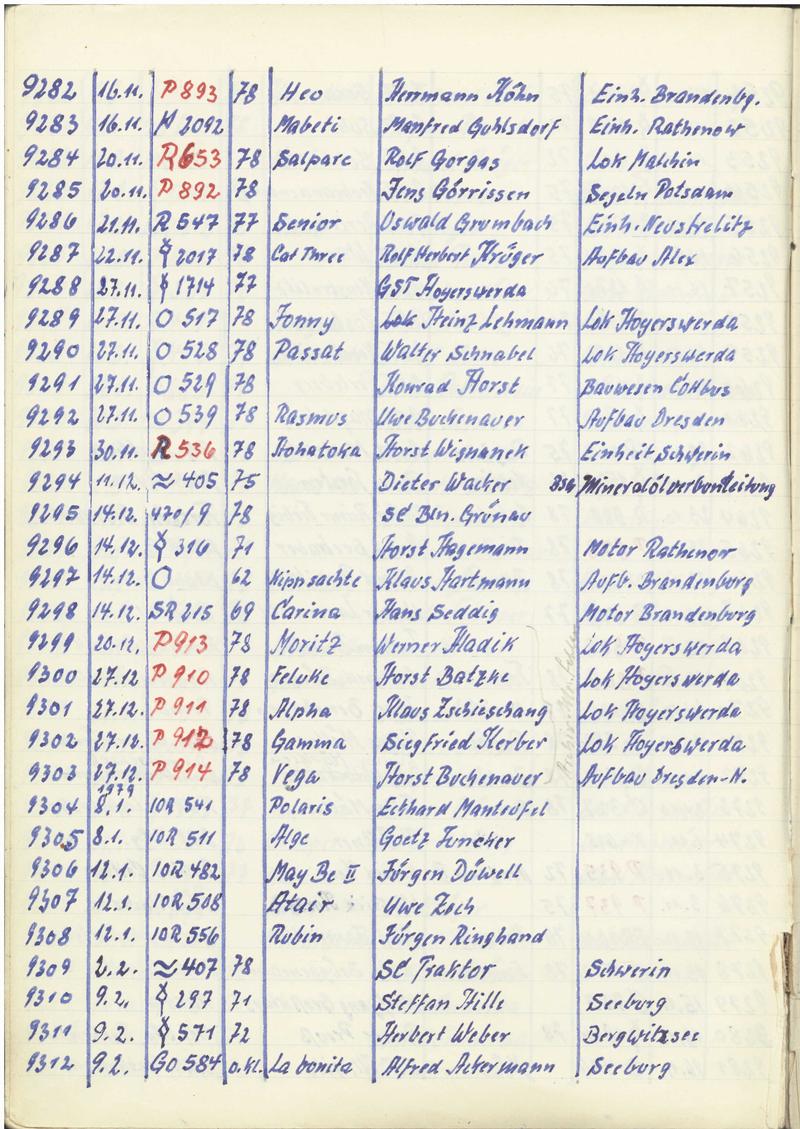 9282 16.11. P 893 78 Heo Herrmann Höhn Einh. Brandenbg.
9283 16.11. H 2092 Mabeti Manfred Guhlsdorf Einh. Rathenow
9284 20.11. R 653 78 Salparc Rolf Gorgas Lok Malchin
9285 20.11. P 892 78 Jens Görrissen Segeln Potsdam
9286 21.11. R 547 77 Senior Oswald Grumbach Einh. Neustrelitz
9287 22.11. 2017 78 Cat Three Rolf Herbert Krüger Aufbau Alex
9288 27.11. 1714 77 GST Hoyerswerda
9289 27.11. O 517 78 Jonny Lok Heinz Lehmann Lok Hoyerswerda
9290 27.11. O 528 78 Passat Walter Schnabel Lok Hoyerswerda
9291 27.11. O 529 78 Konrad Horst Bauwesen Cottbus
9292 27.11. O 539 78 Rasmus Uwe Buchenauer Aufbau Dresden
9293 30.11. R 536 78 Hohatoka Horst Wignanek Einheit Schwerin
9294 11.12. ≈ 405 75 Dieter Wacker BSG Mineralölverbundleitung
9295 14.12. 470/9 78 SC Bln. Grünau
9296 14.12. 316 71 Horst Hagemann Motor Rathenow
9297 14.12. O 62 Kippsachte Klaus Hartmann Aufb. Brandenburg
9298 14.12. SR 215 69 Carina Hans Seddig Motor Brandenburg
9299 20.12. P 913 78 Moritz Werner Hladik Lok Hoyerswerda
9300 27.12 P 910 78 Feluke Horst Batzke Lok Hoyerswerda
9301 27.12. P 911 78 Alpha Klaus Zschieschang Lok Hoyerswerda
9302 27.12. P 912 78 Gamma Siegfried Kerber Lok Hoyerswerda
9303 27.12. P 914 78 Vega Horst Buchenauer Aufbau Dresden-N.
1979
9304 8.1. 10R 541 Polaris Eckhard Manteufel
9305 8.1. 10R 511 Alge Goetz Juncker
9306 12.1. 10R 482 May Be II Jürgen Düwell
9307 12.1. 10R 508 Atair Uwe Zech
9308 12.1. 10R 556 Rubin Jürgen Ringhand
9309 2.2. ≈ 407 78 SC Traktor Schwerin
9310 9.2. 297 71 Steffan Hille Seeburg
9311 9.2. 571 72 Herbert Weber Bergwitzsee
9312 9.2. GO 584 o.kl. La bonita Alfred Ackermann Seeburg